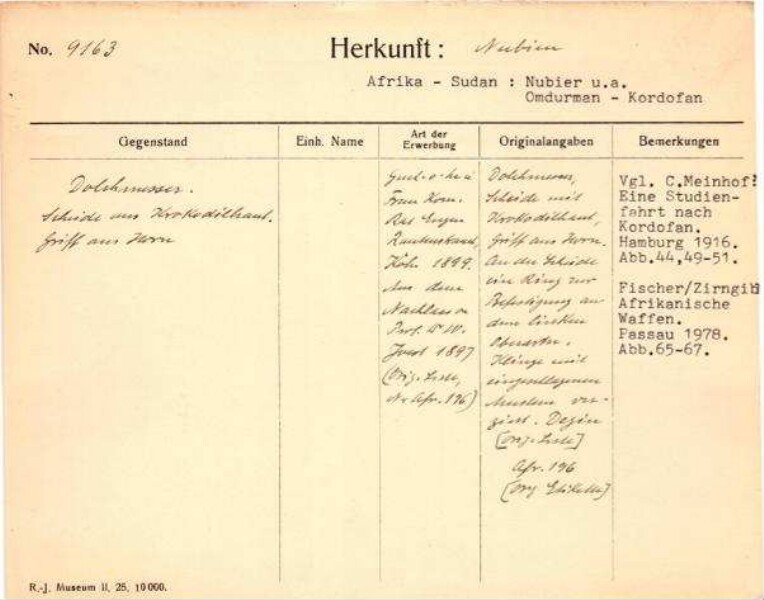 No. 9163 Herkunft: Nubien
Afrika - Sudan : Nubier u.a.
Omdurman - Kordofan
Gegenstand
Einh. Name
Art der
Erwerbung
Originalangaben
Bemerkungen
Dolchmesser.
Scheide aus Krokodilhaut.
Griff aus Horn
Frau Kom.
Rat Eugen
Rautenstrauch,
Köln 1899.
Aus dem
Nachlass v.
Prof. Dr W.
Joest 1897
(Orig. Liste,
Nr Afr. 196)
Dolchmesser,
Scheide mit
Krokodilhaut,
Griff aus Horn.
An der Scheide
ein Ring zur
Befestigung an
dem linken
Oberarm.
Klinge mit
eingeschlagenen
Mustern ver-
ziert.
[Orig. Liste]
Afr. 196
[Orig Etikette]
Vgl. C.Meinhof:
Eine Studien-
fahrt nach
Kordofan.
Hamburg 1916.
Abb.44,49-51.
Fischer/Zirngibl
Afrikanische
Waffen.
Passau 1978.
Abb.65-67.
R.-J. Museum II, 25, 10000.